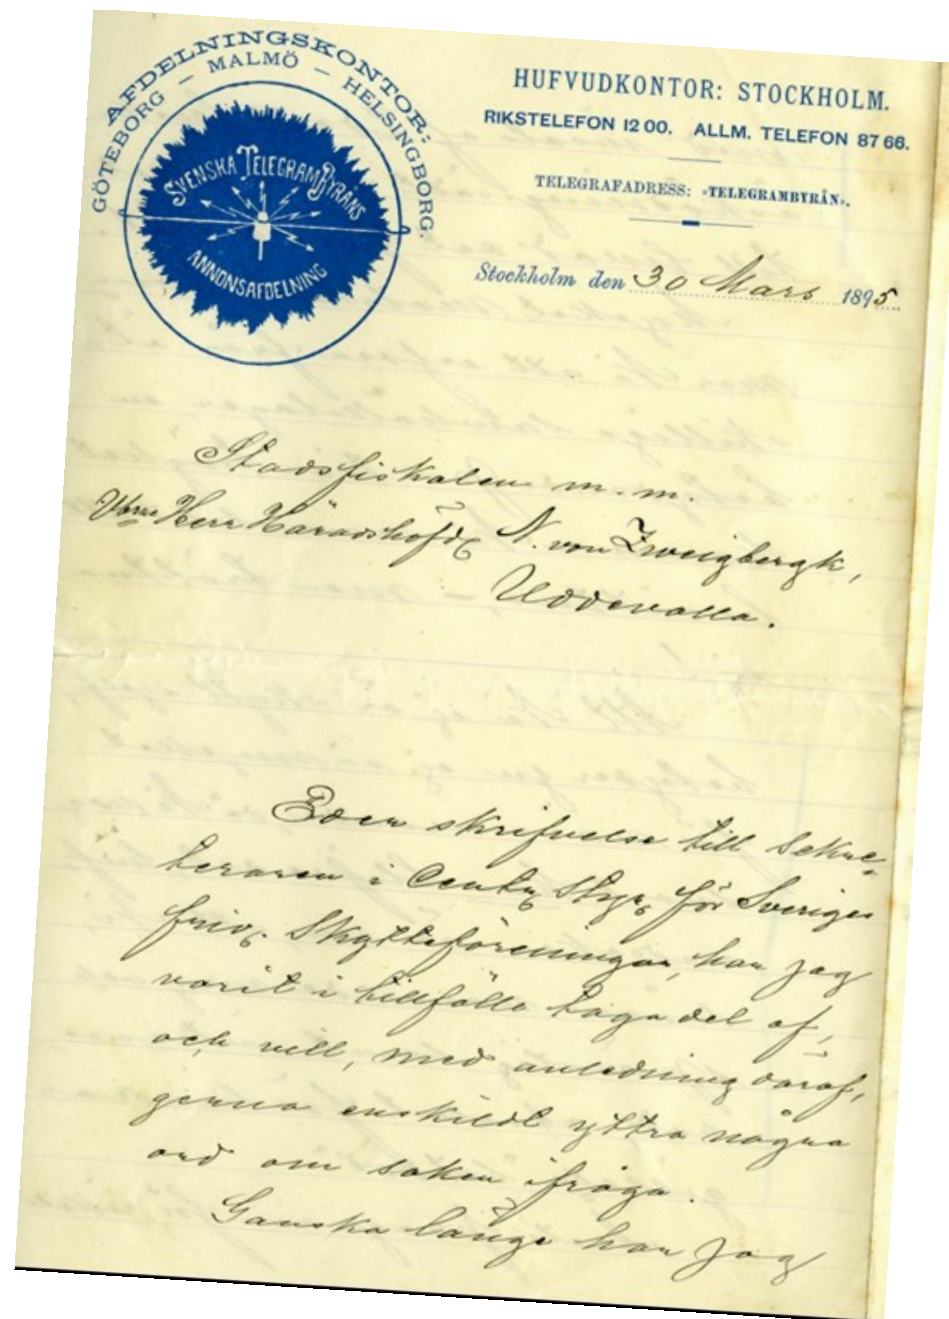 AFDELNINGSKONTOR:
GÖTEBORG — MALMÖ — HELSINGBORG.
SVENSKA TELEGRAMBYRÅNS
ANNONSAFDELNING
HUFVUDKONTOR: STOCKHOLM.
RIKSTELEFON 12 00. ALLM. TELEFON 87 66.
TELEGRAFADRESS: »TELEGRAMBYRÅN».
Stockholm den 30 Mars 1895.
Stadsfiskalen m. m.
Herr Häradshöfd N. von Zweigbergk,
Uddevalla.
Eder skrifvelse till sekre-
teraren i Centr Styr för Sveriges
friv. Skytteföreningar, har jag
varit i tillfälle taga del af,
och vill, med anledning däraf,
gerna enskildt yttra några
ord om saken ifråga.
Ganska länge har jag